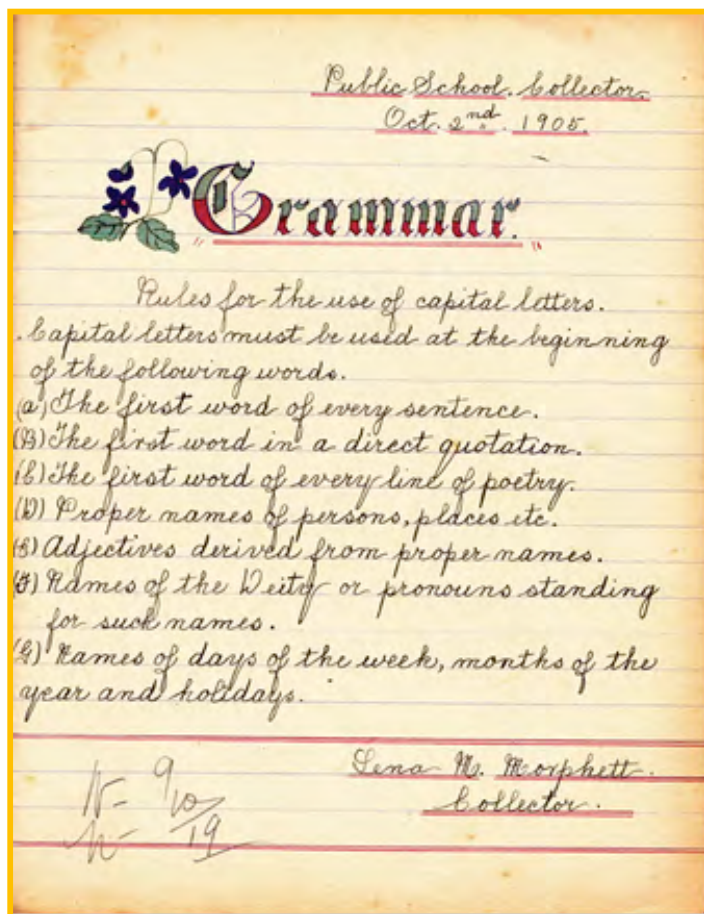 Public School. Collector.
Oct. 2nd. 1905.
"Grammar."
Rules for the use of capital letters.
. Capital letters must be used at the beginning
of the following words.
(a) The first word of every sentence.
(B) The first word in a direct quotation.
(C) The first word of every line of poetry.
(D) Proper names of persons, places etc.
(E) Adjectives derived from proper names.
(F) Names of the Deity or pronouns standing
for such names.
(G) Names of days of the week, months of the
year and holidays.
Lena M. Morphett.
Collector.
9/10
19